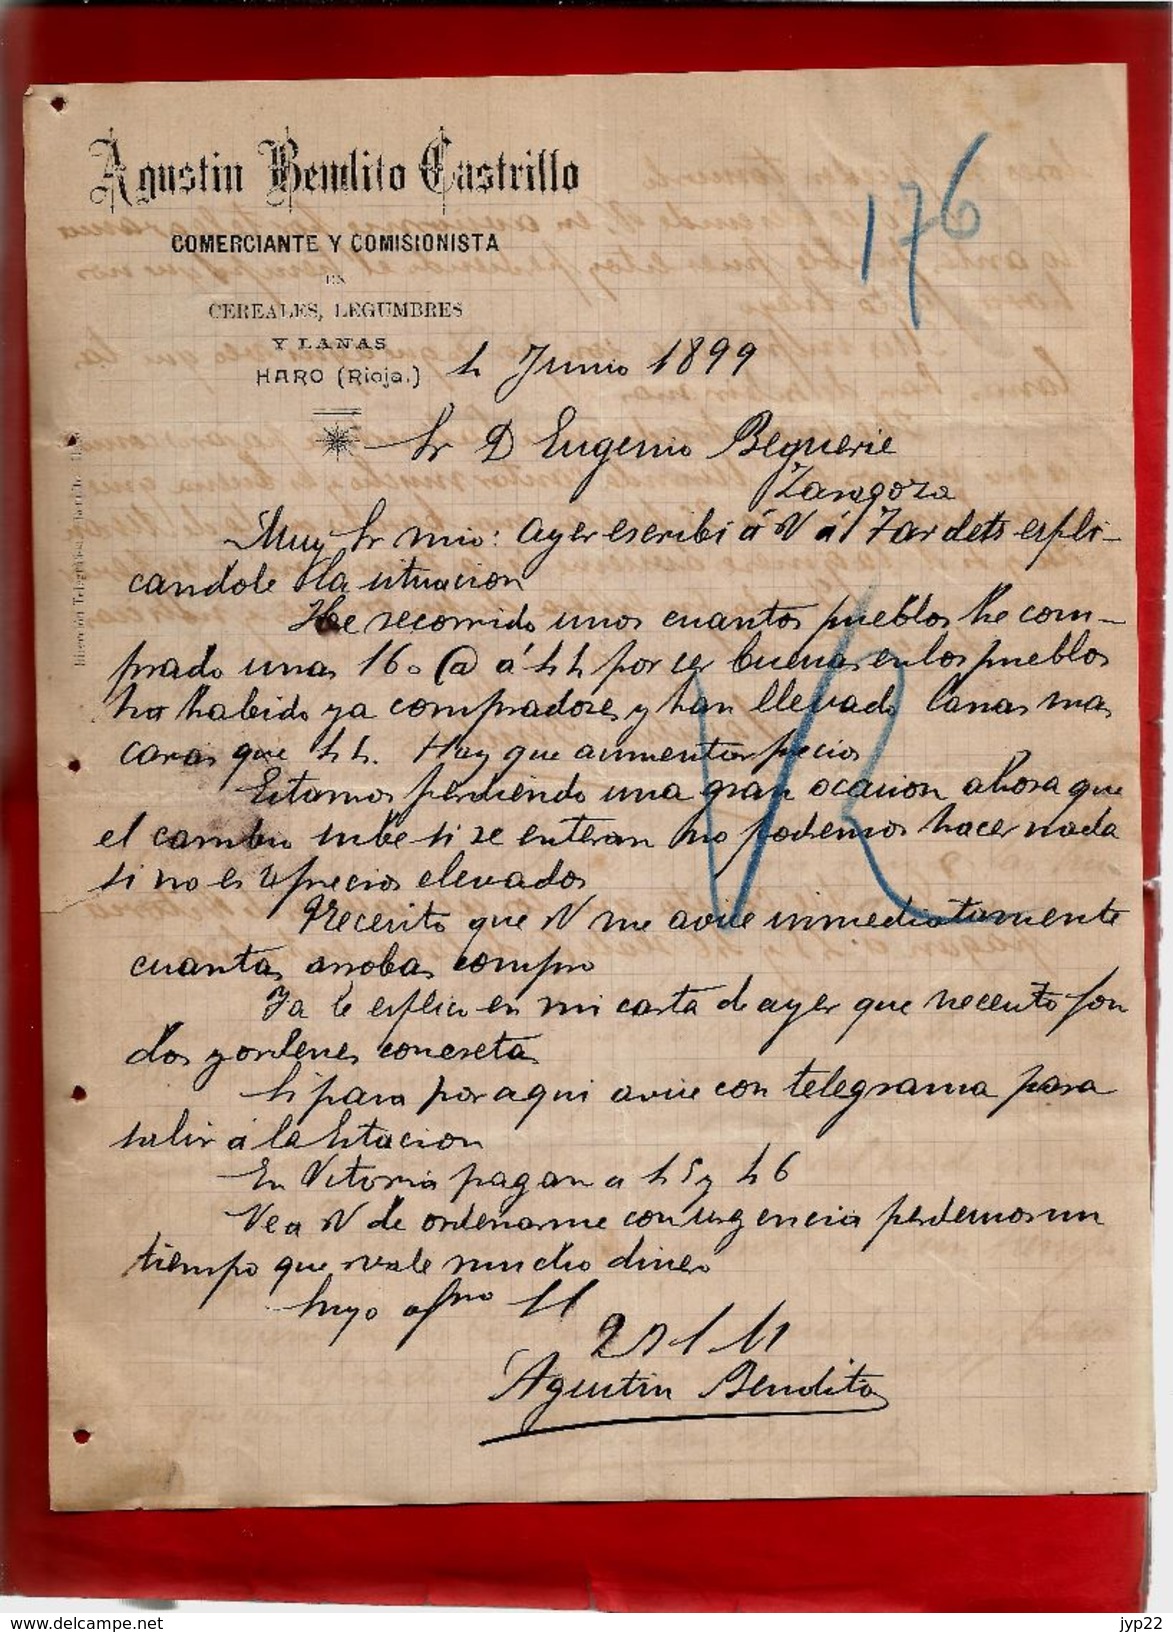 Agustin Bendito Castrillo
COMERCIANTE Y COMISIONISTA
EN
CEREALES, LEGUMBRES
Y LANAS
HARO (Rioja.)
176
Junio 1899
Sr D Eugenio Bequerie
Zaragoza
Muy Sr mio: ayer escribi á V á Tardets espli-
candole la situacion
He recorrido unos cuantos pueblos he com-
prado unas 160 @ á 44 por ser buenas en los pueblos
ha habido ya compradores y han llevado lanas mas
caras que 44. Hay que aumentar precios
Estamos perdiendo una gran ocasion ahora que
el cambio sube si se enteran no podremos hacer nada
si no es á precios elevados
Necesito que V me avise inmediatamente
cuantas arrobas compro
Ya le esplico en mi carta de ayer que necesito fon
dos y ordenes concretas
Si pasa por aqui avise con telegrama para
salir á la Estacion
En Vitoria pagan a 45 y 46
Vea V de ordenarme con urgencia perdemos un
tiempo que vale mucho dinero
Suyo afmo SS
Q B S M
Agustin Bendito
jyp22